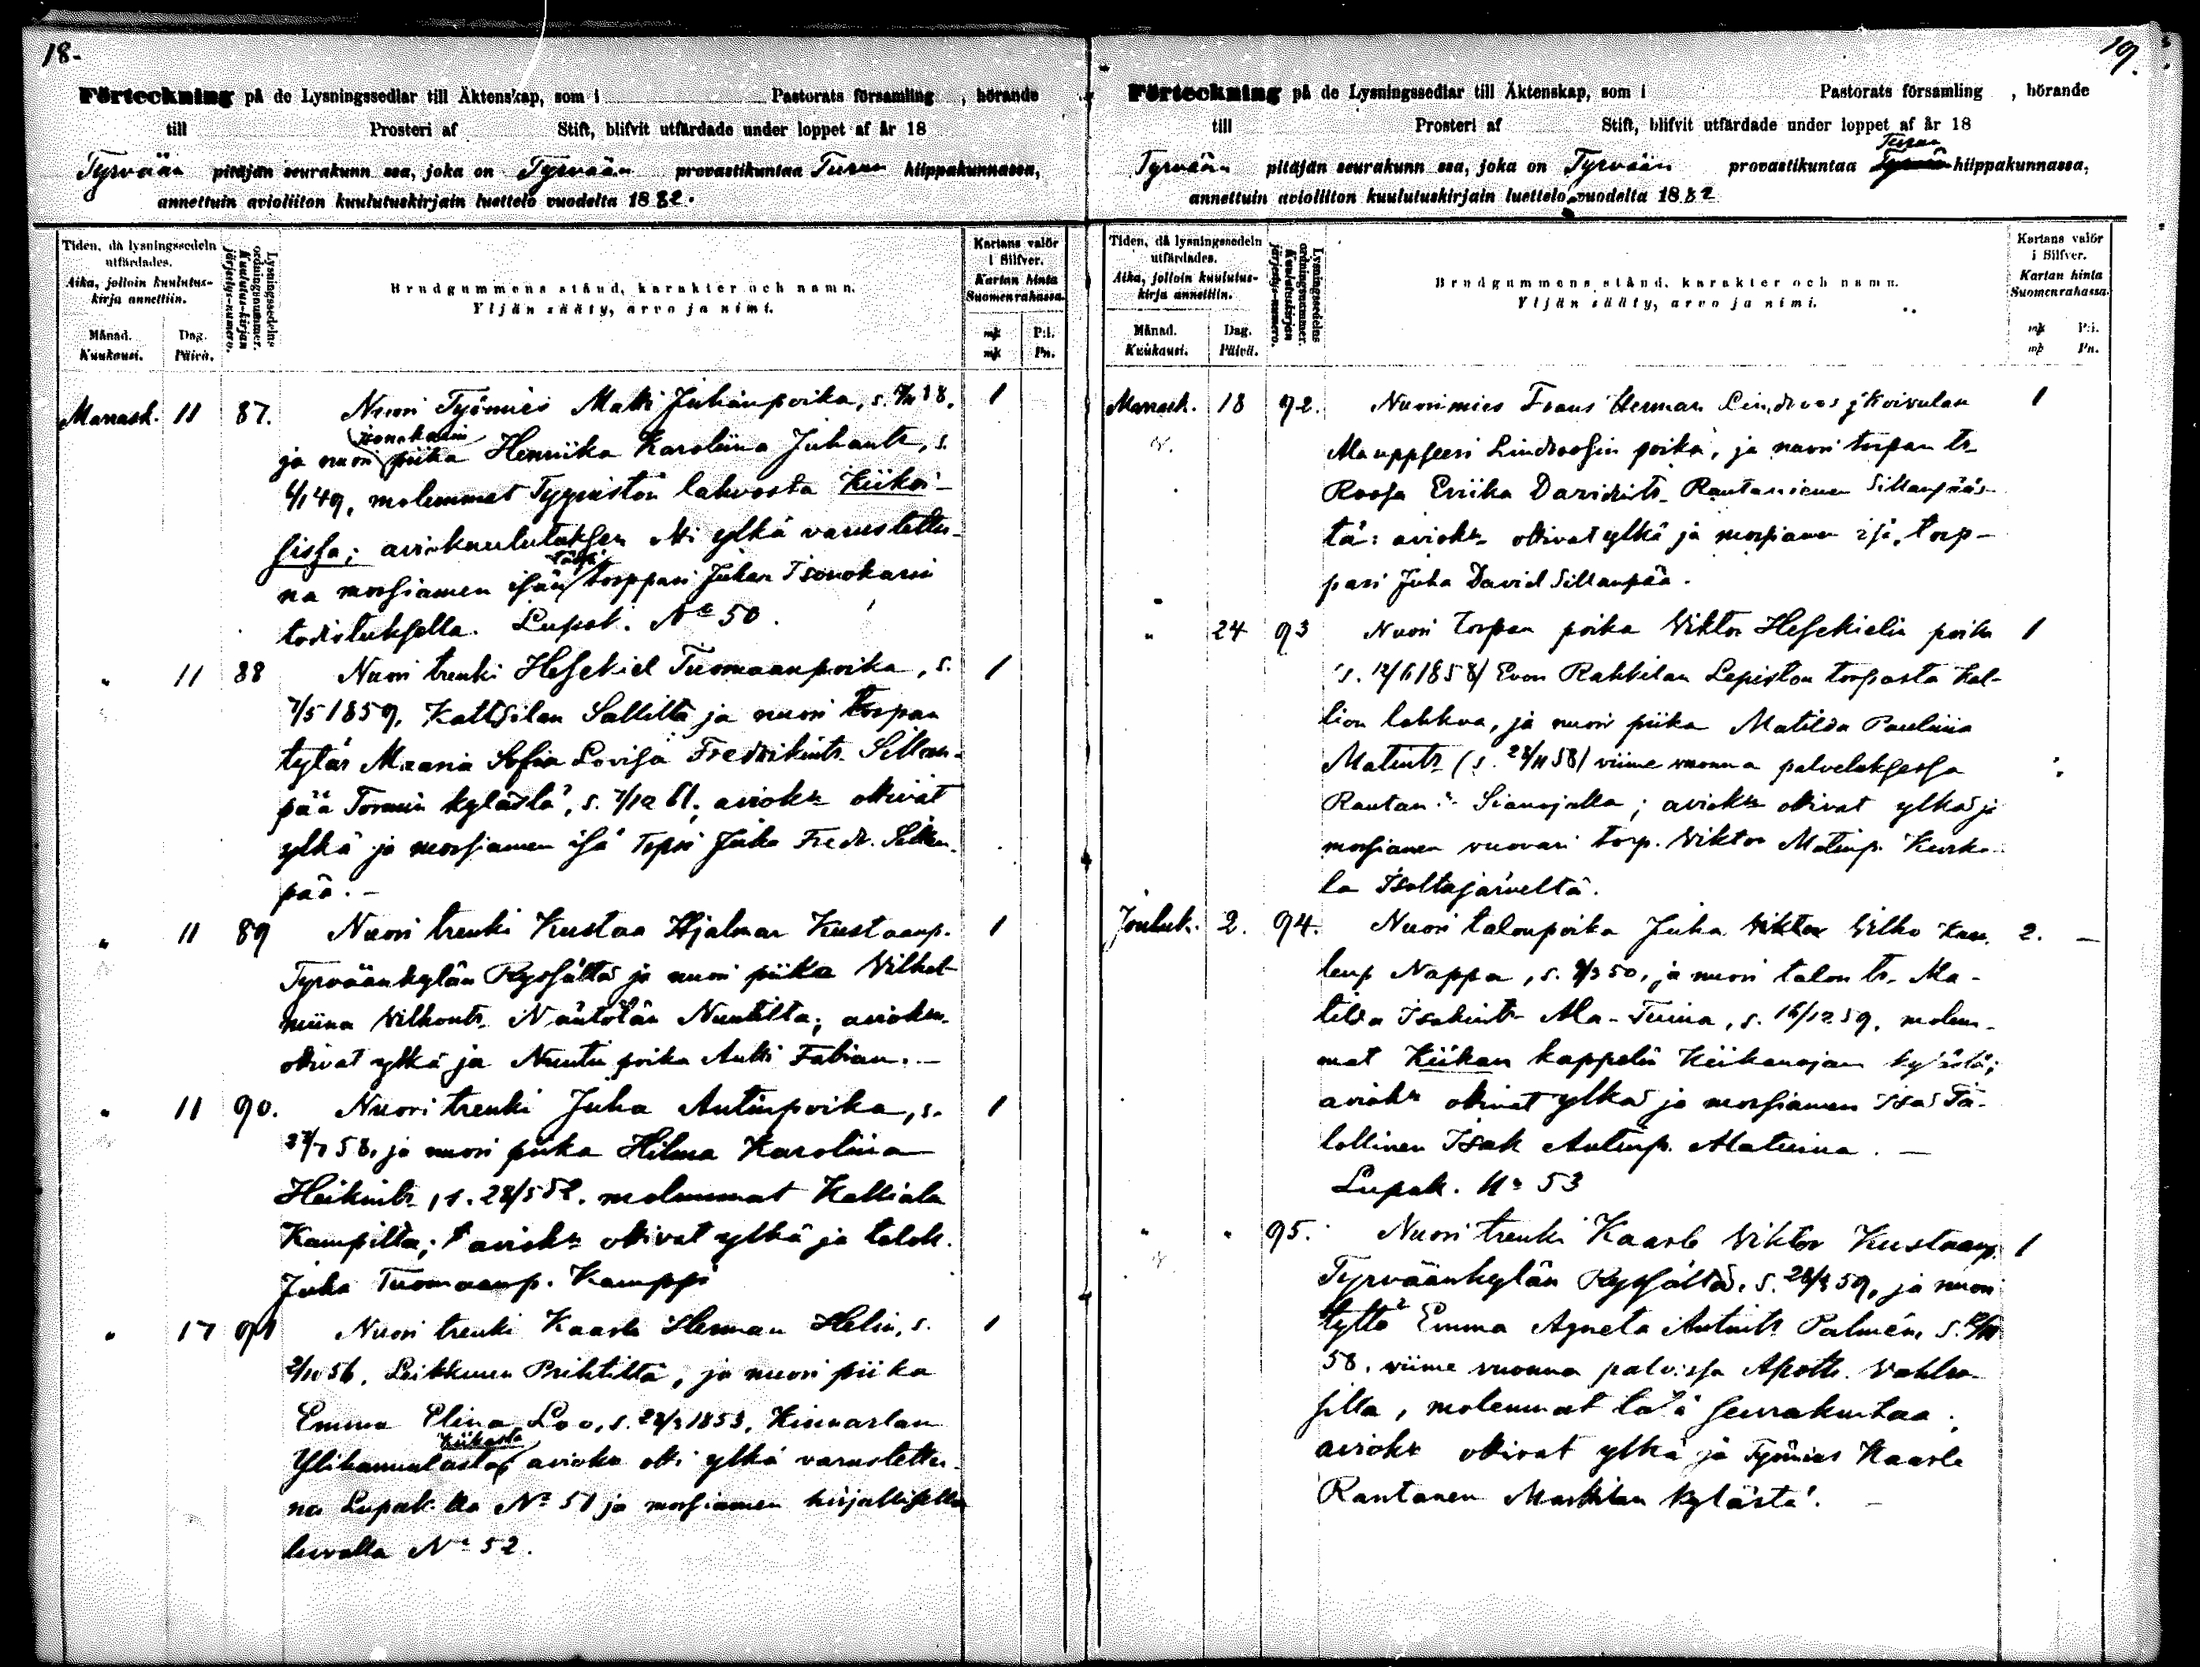 18-
Förteckning på de Lysningssedlar till Äktenskap, som i Pastorats församling , hörande
till Prosteri af Stift, blifvit utfärdade under loppet af år 18
Tyrvään pitäjän seurakunn ssa, joka on Tyrvään provastikuntaa Turun hiippakunnassa,
annettuin avioliiton kuulutuskirjain luettelo vuodelta 1882.
Tiden, då lysningssedeln utfärdades.
Aika, jolloin kuulutus-kirja annettiin.
Månad. Kuukausi.
Dag. Päivä.
Lysningssedelns ordningsnummer.
Kuulutus-kirjan järjestys-numero.
Brudgummens stånd, karakter och namn.
Yljän sääty, arvo ja nimi.
Kartans valör i Silfver.
Kartan hinta Suomen rahassa.
mk P:i.
mk Pn.
Marrask. 11 87. Nuori Työmies Matti Juhanpoika, s. 38. 1
ja nuori piika Henriika Karoliina Juhantr, s.
6/1 49, molemmat lahvosta Kiikoi-
sissa; aviokuulutuksen otti ylkä varustettu-
na morsiamen isän torppari Juhan Isonokarin
todistuksella. Lupak. No 50.
" 11 88 Nuori trenki Hesekiel Tuomaanpoika, s. 1
7/5 1859, Sallilta ja nuori torpan
tytär Maria Sofia Lovisa Fredrikintr Sillan-
pää Tormin kylästä, s. 7/12 61; aviok. ottivat
ylkä ja morsiamen isä Juha Fredr. Sillan-
pää. -
" 11 89 Nuori trenki Kustaa Hjalmar Kustaanp. 1
Tyrväänkylän Ryssältä ja nuori piika Vilhel-
miina Vilhontr. Nuutilta; aviok.
ottivat ylkä ja Nuutin poika Antti Fabian. -
" 11 90. Nuori trenki Juha Antinpoika, s. 1
58, ja nuori piika Hilma Karoliina
Heikintr, s. 28/5 52. molemmat Kalliala
Kampilta; aviok. ottivat ylkä ja talok.
Juha Tuomaanp. Kamppi
" 17 91 Nuori trenki Kaarle Herman Helin, s. 1
56, Leikkunen Prihtiltä, ja nuori piika
Emma Elina Loo, s. 1853, Kinnarlan
Kiikasta
aviok. otti ylkä varustettu-
na Lupak:lla No 51 ja morsiamen kirjallisella
luvalla No 52.
19.
Förteckning på de Lysningssedlar till Äktenskap, som i Pastorats församling , hörande
till Prosteri af Stift, blifvit utfärdade under loppet af år 18
Turun
Tyrvään pitäjän seurakunn ssa, joka on Tyrvään provastikuntaa hiippakunnassa,
annettuin avioliiton kuulutuskirjain luettelo vuodelta 1882
Tiden, då lysningssedeln utfärdades.
Aika, jolloin kuulutus-kirja annettiin.
Månad. Kuukausi.
Dag. Päivä.
Lysningssedelns ordningsnummer.
Kuulutuskirjan järjestys-numero.
Brudgummens stånd, karakter och namn.
Yljän sääty, arvo ja nimi.
Kartans valör i Silfver.
Kartan hinta Suomen rahassa.
mk P:i.
mk Pn.
Marrask. 18 92. Nuorimies Frans Herman Lindroos 1
Lindroosin poika, ja nuori torpan tr.
Roosa Eriika Davidintr. Rautaniemen Sillanpääs-
tä: aviok. ottivat ylkä ja morsiamen isä, torp-
pari Juha David Sillanpää.
" 24 93 Nuori torpan poika Viktor Hesekielin poika 1
(s. 12/6 1858) Evon Rahkilan Lepistön torpasta Kal-
lion lahkoa, ja nuori piika Matilda Pauliina
Matintr (s. 58) viime vuonna palveluksessa
Rautan. ; aviok. ottivat ylkä ja
morsiamen vuovari torp. Viktor Matinp. Kurka-
la Isoltajärveltä.
Jouluk. 2. 94. Nuori talonpoika Juha Viktor Vilho 2. -
Nappa, s. 50, ja nuori talon tr. Ma-
tilda Isakintr Ala-Tuina, s. 16/12 59, molem-
mat Kiikan kappelin Kiikanojan kylästä;
aviok. ottivat ylkä ja morsiamen isä Ta-
lollinen Isak Antinp. Alatuina. -
Lupak. No 53
" " 95. Nuori trenki Kaarle Viktor Kustaanp. 1
Tyrväänkylän Ryssältä, s. 59, ja nuori
tyttö Emma Agneta Antintr. Palmén, s.
58, viime vuonna Apoth.
, molemmat tätä seurakuntaa;
aviok. ottivat ylkä ja Työmies Kaarle
Rantanen Markilan kylästä. -